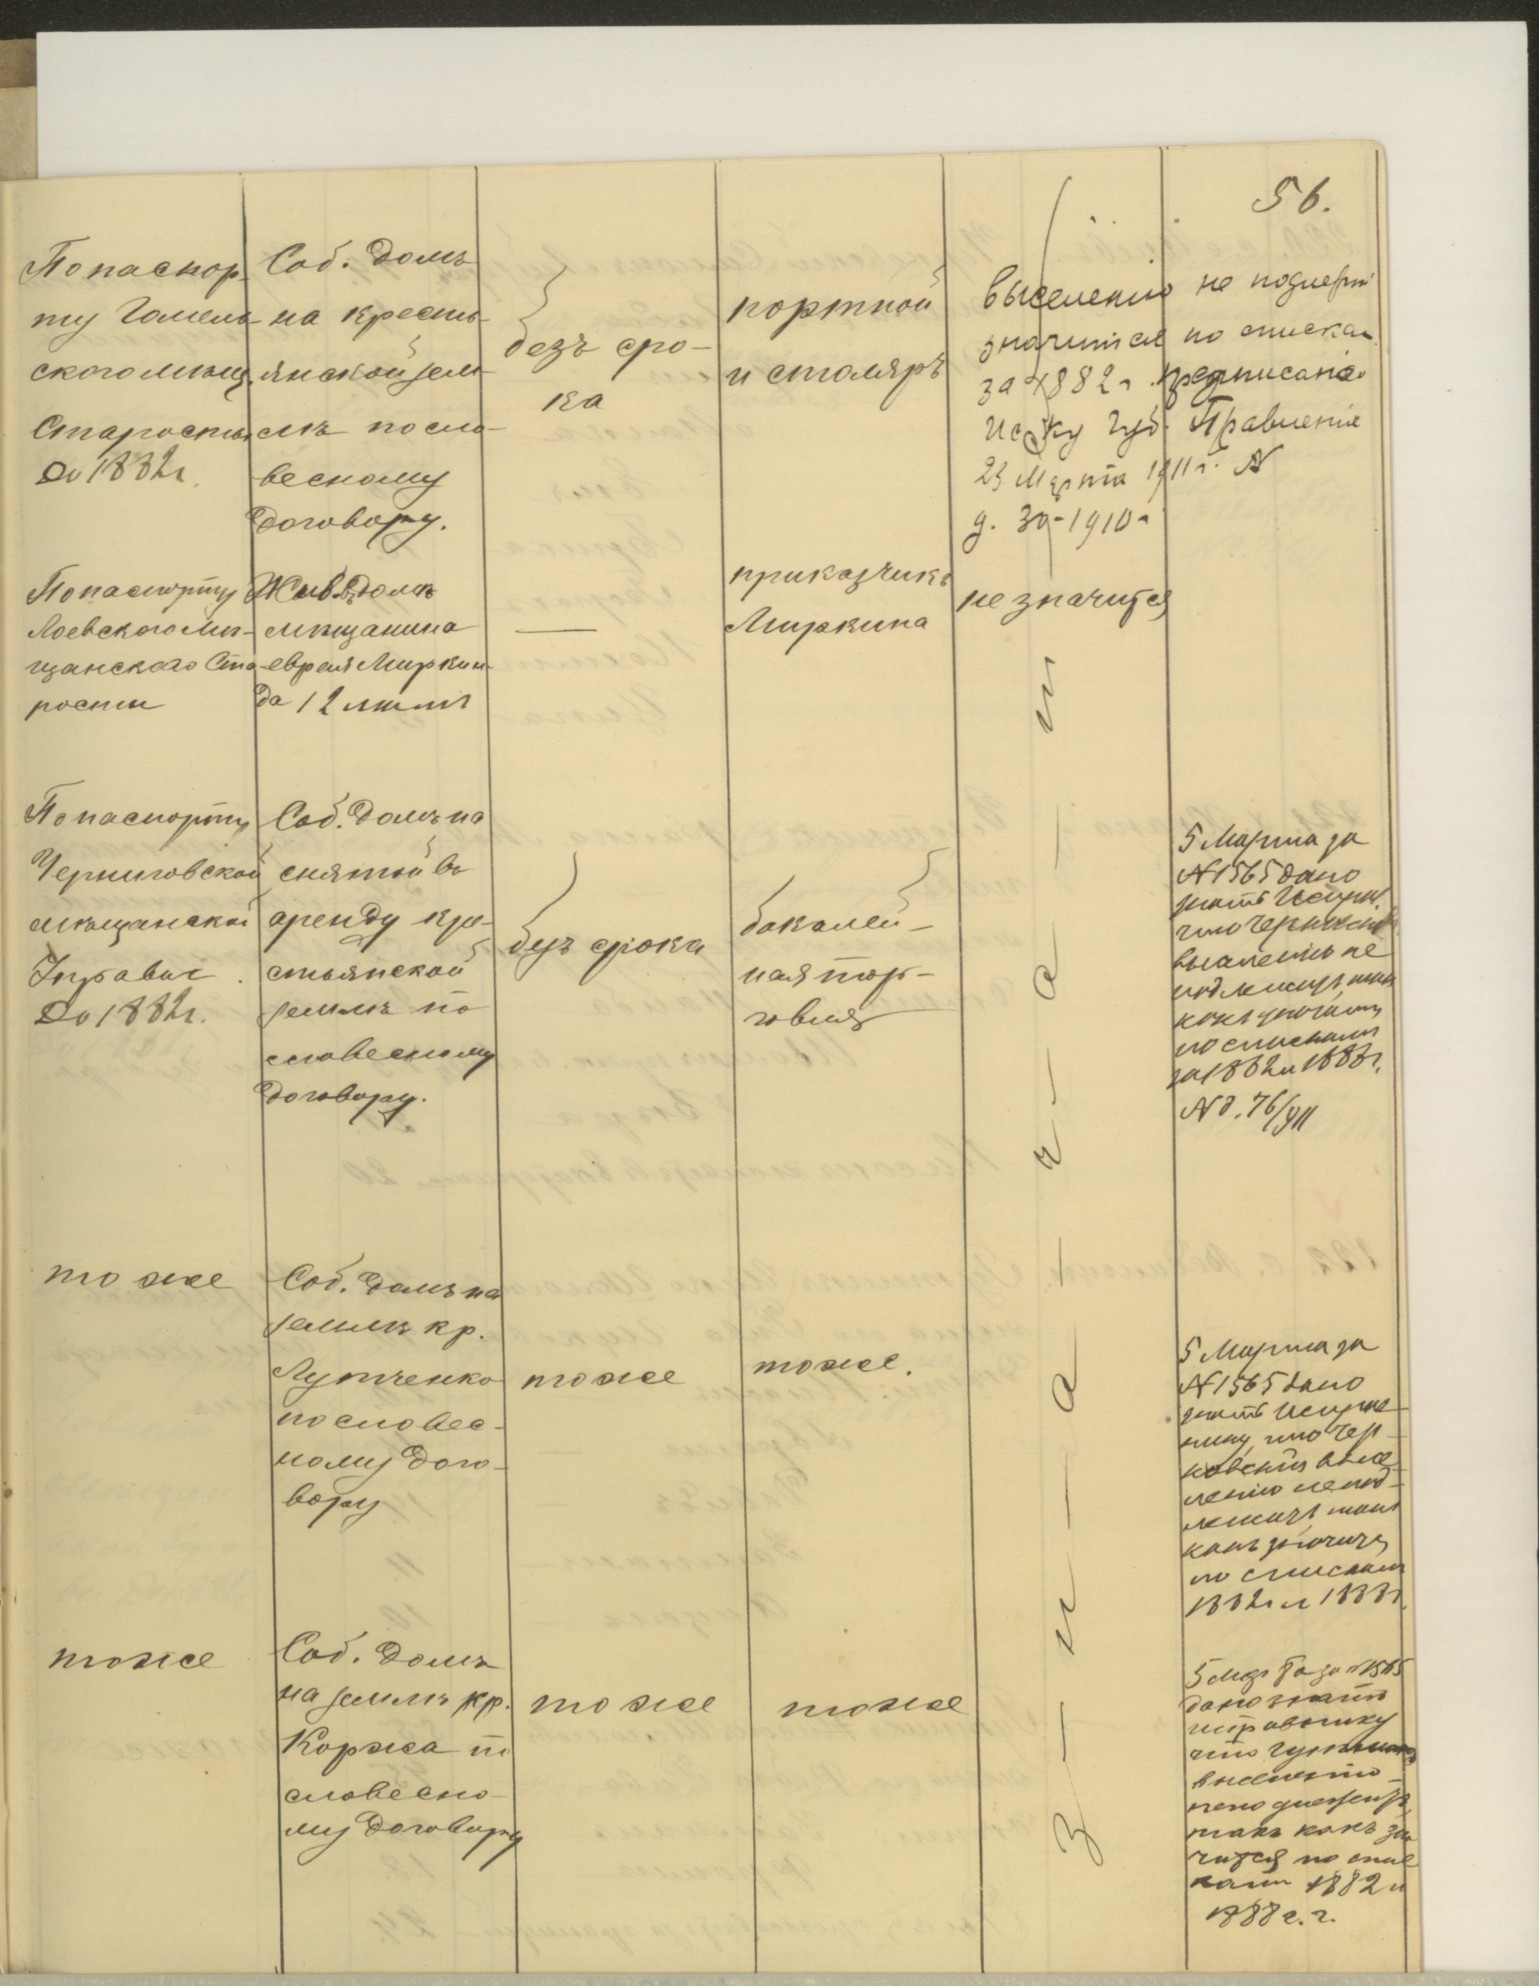 56.
По паспор-
ту Гомель-
ского мѣщ.
Старосты
до 1882 г.
Соб. домъ
на кресть-
янской зем-
лѣ по сло-
весному
договору.
безъ сро-
ка
портной
и столяръ
выселенію не подлежит
значится по спискам
за 1882 г. предписаніе
Исп-ку Губ. Правленія
23 Марта 1911 г. N
д. 30-1910 г.
По паспорту
Лоевского Мѣ-
щанского Ста-
росты
Жив. въ домѣ
мѣщанина
еврея Миркин-
да 12 лѣтъ
—
приказчикъ
Миркина
не значится
По паспорту
Черниговской
мѣщанской
Управы
до 1882 г.
Соб. домъ на
снятой въ
аренду кре-
стьянской
землѣ по
словесному
договору.
безъ срока
бакалей-
ная тор-
говля
5 Марта за
N 1565 дано
знать Исправ.
что
выселенію не
подлежитъ, такъ
какъ значится
по спискамъ
за 1882 и 1888 г.
N д. 76/911
тоже
Соб. домъ на
землѣ кр.
Лутченко
по словес-
ному дого-
вору
тоже
тоже.
5 Марта за
N 1565 дано
знать Исправ-
нику, что Чер-
новскій высе-
ленію не под-
лежитъ, такъ
какъ значится
по спискамъ
1882 г. и 1888 г.
тоже
Соб. домъ
на землѣ кр.
Коржа по
словесно-
му договору
тоже
тоже
5 Марта за N 1565
дано знать
исправнику
что
выселенію
не подлежитъ,
такъ какъ зна
чится по спис
камъ 1882 и
1888 г. г.
З — н — а — ч — а — т — и